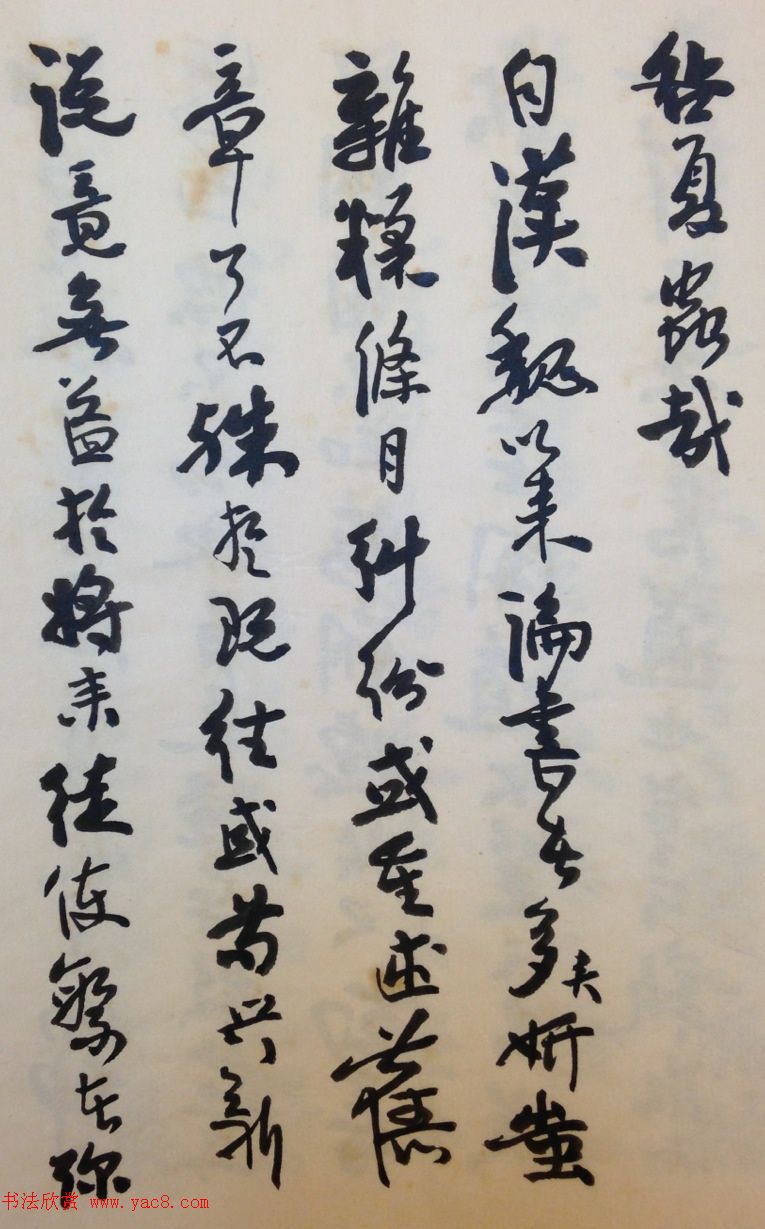 於夏蟲哉
自漢魏以來論書者多矣妍蚩
雜糅條目糾紛或重述舊
章了不殊於既往或苟興新
说竟無益於將來徒使繁者彌
书法欣赏 www.yac8.com